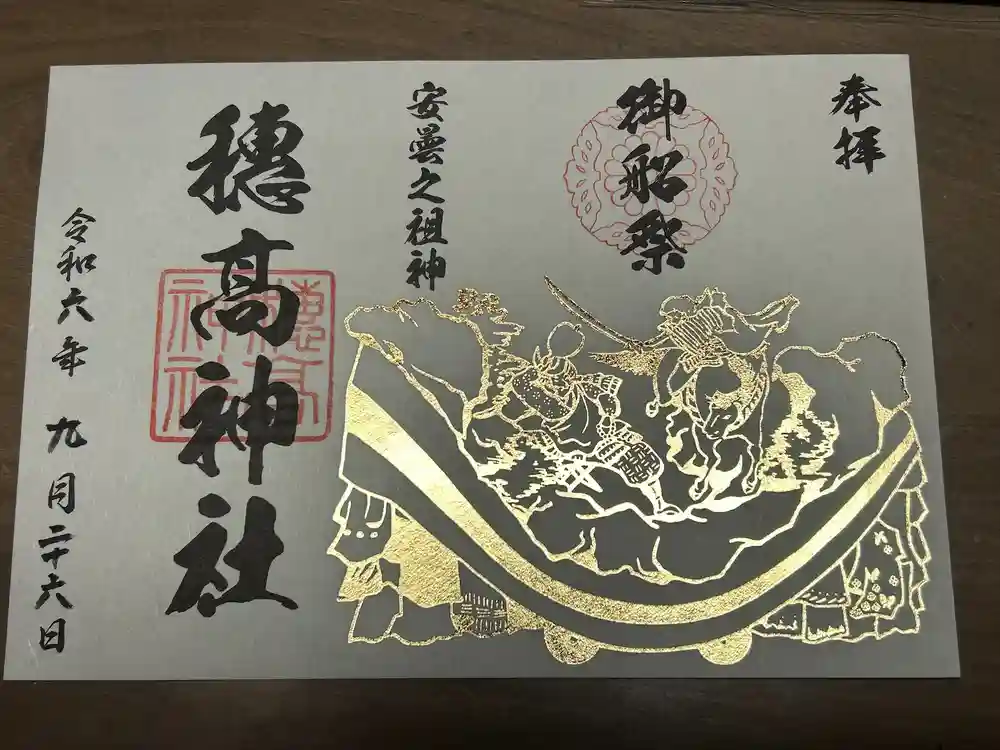 奉拝
御船祭
安曇之祖神
穂高神社
穂高神社
令和六年 九月二十六日